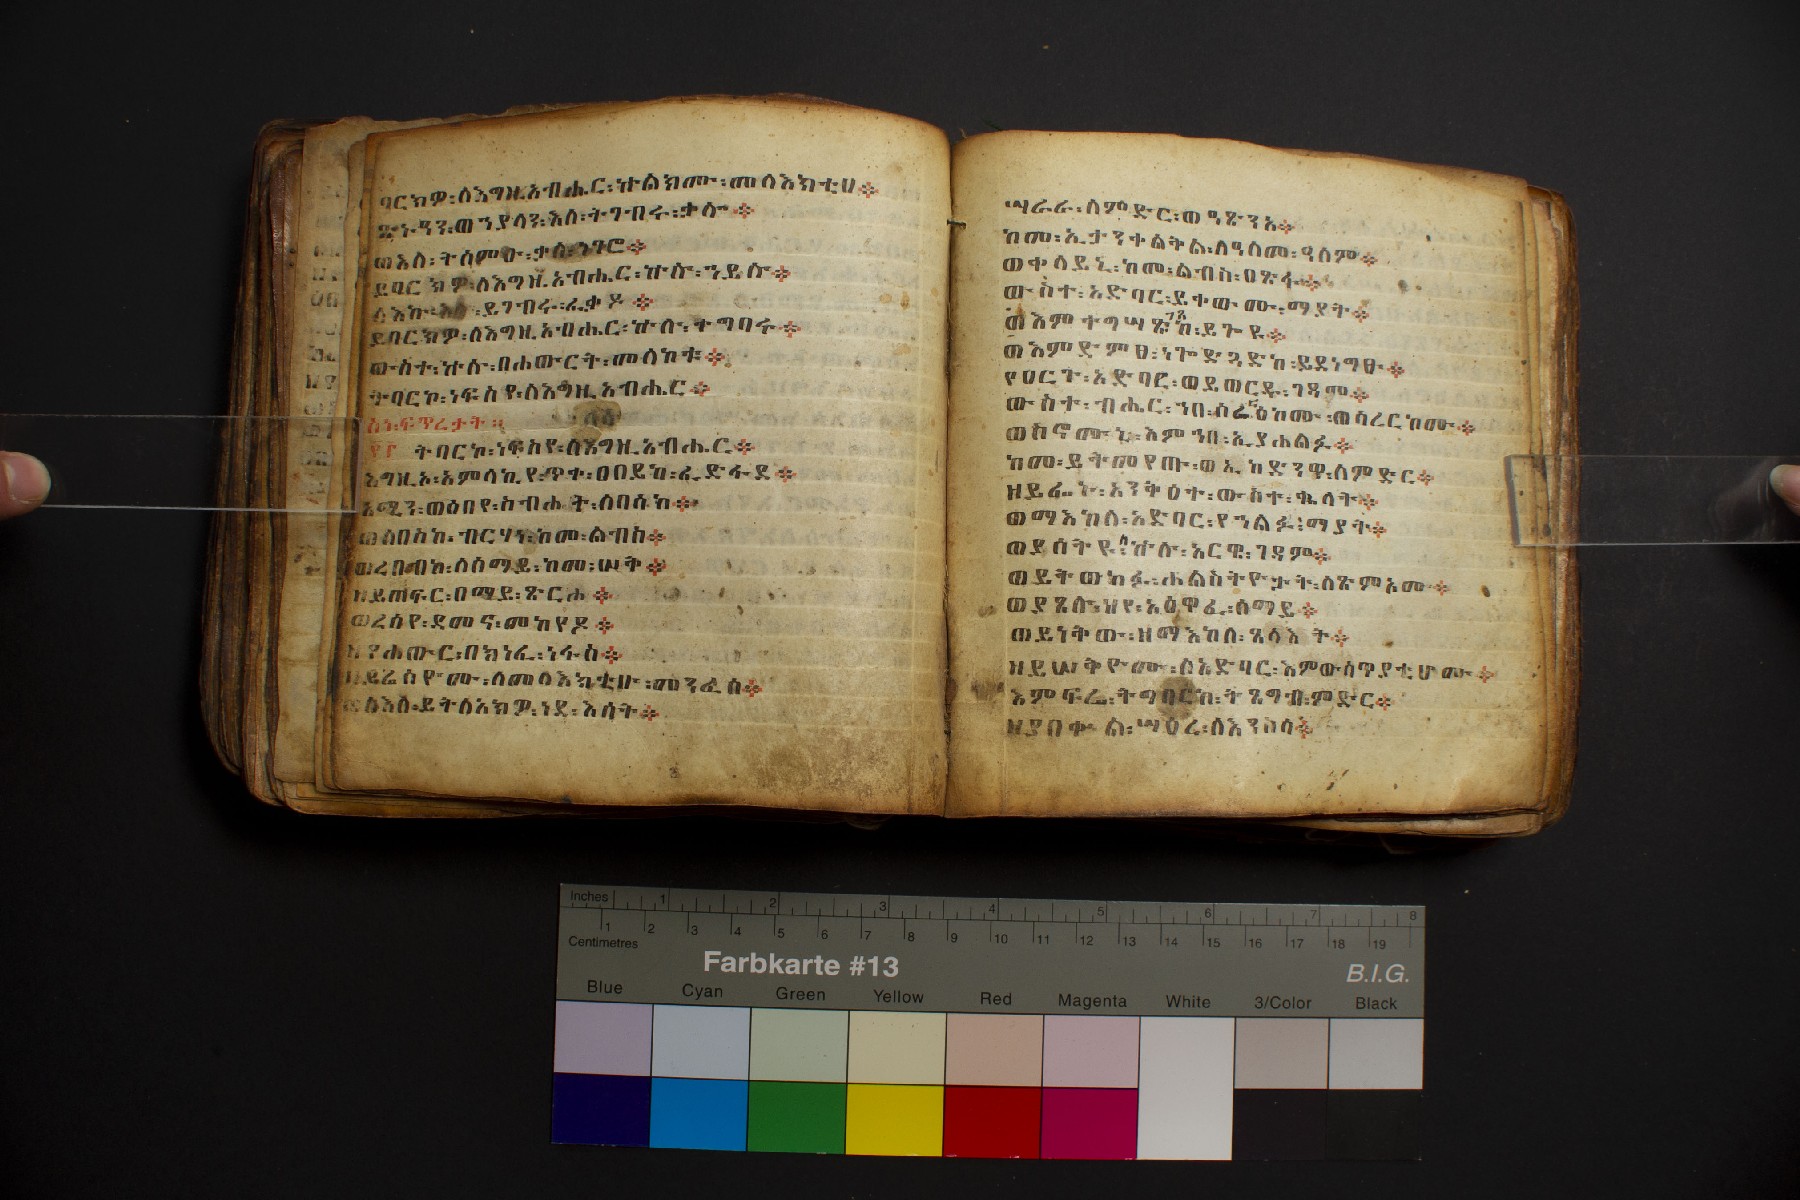 ባርክዎ፡ለእግዚአብሔር፡ኵልክሙ፡መላእክቲሁ፨
ጽኑዓን፡ወኀያላን፡እለ፡ትገብሩ፡ቃሎ፨
ወእለ፡ትሰምዑ፡ቃለ፡ነገሮ፨
ይባርክዎ፡ለእግዚአብሔር፡ኵሉ፡ኀይሉ፨
ላእኩ፡እለ፡ይገብሩ፡ፈቃዶ፨
ይባርክዎ፡ለእግዚአብሔር፡ኵሉ፡ተግባሩ፨
ውስተ፡ኵሉ፡በሐውርት፡መለኮቱ፨
ትባርኮ፡ነፍስየ፡ለእግዚአብሔር፨
ፍጥረታት።
፻፫ ትባርኮ፡ነፍስየ፡ለእግዚአብሔር፨
እግዚአ፡አምላኪየ፡ጥቀ፡ዐበይከ፡ፈድፋደ፨
አሚን፡ወዕበየ፡ስብሐት፡ለበስከ፨
ወለበስከ፡ብርሃነ፡ከመ፡ልብስ፨
ወረበብከ፡ለሰማይ፡ከመ፡ሠቅ፨
ዘይጠፍር፡በማይ፡ጽርሐ፨
ወረሰየ፡ደመና፡መከየዶ፨
ዘየሐውር፡በክነፈ፡ነፋስ፨
ዘይሬስዮሙ፡ለመላእክቲሁ፡መንፈሰ፨
ወለእለ፡ይትለአክዎ፡ነደ፡እሳት፨
ሣረራ፡ለምድር፡ወዓጽንአ፨
ከመ፡ኢታንቀልቅል፡ለዓለመ፡ዓለም፨
ወቀላይኒ፡ከመ፡ልብስ፡ዐጽፋ፨
ውስተ፡አድባር፡ይቀውሙ፡ማያት፨
ወእምተግሣጽከ፡ይጐዪ፨
ወእምድምፀ፡ነጐድጓድከ፡ይደነግፁ፨
የዐርጉ፡አድባረ፡ወይወርዱ፡ገዳመ፨
ውስተ፡ብሔር፡ኀበ፡ሳረርኮሙ፨
ወሰኖሙኒ፡እምኀበ፡ኢያሐልፉ፨
ከመ፡ይትመየጡ፡ወኢይክድንዋ፡ለምድር፨
ዘይፌኑ፡አንቅዕተ፡ውስተ፡ቈላት፨
ወማእከለ፡አድባር፡የኀልፉ፡ማያት፨
ወያሰትዩ፡ኵሉ፡አርዌ፡ገዳም፨
ወይትወከፉ፡ሐለስትዮታት፡ለጽምኦሙ፨
ወያጸልሉ፡ህየ፡አዕዋፈ፡ሰማይ፨
ወይነቅው፡ዘማእከለ፡ጸላእት፨
ዘይሠቅዮሙ፡ለአድባር፡እምውስጥያቲሆሙ፨
እምፍሬ፡ተግባርከ፡ትጸግብ፡ምድር፨
ዘያበቍል፡ሣዕረ፡ለእንስሳ፨
Inches 1 2 3 4 5 6 7 8
1 2 3 4 5 6 7 8 9 10 11 12 13 14 15 16 17 18 19
Centimetres
Farbkarte #13
B.I.G.
Blue Cyan Green Yellow Red Magenta White 3/Color Black